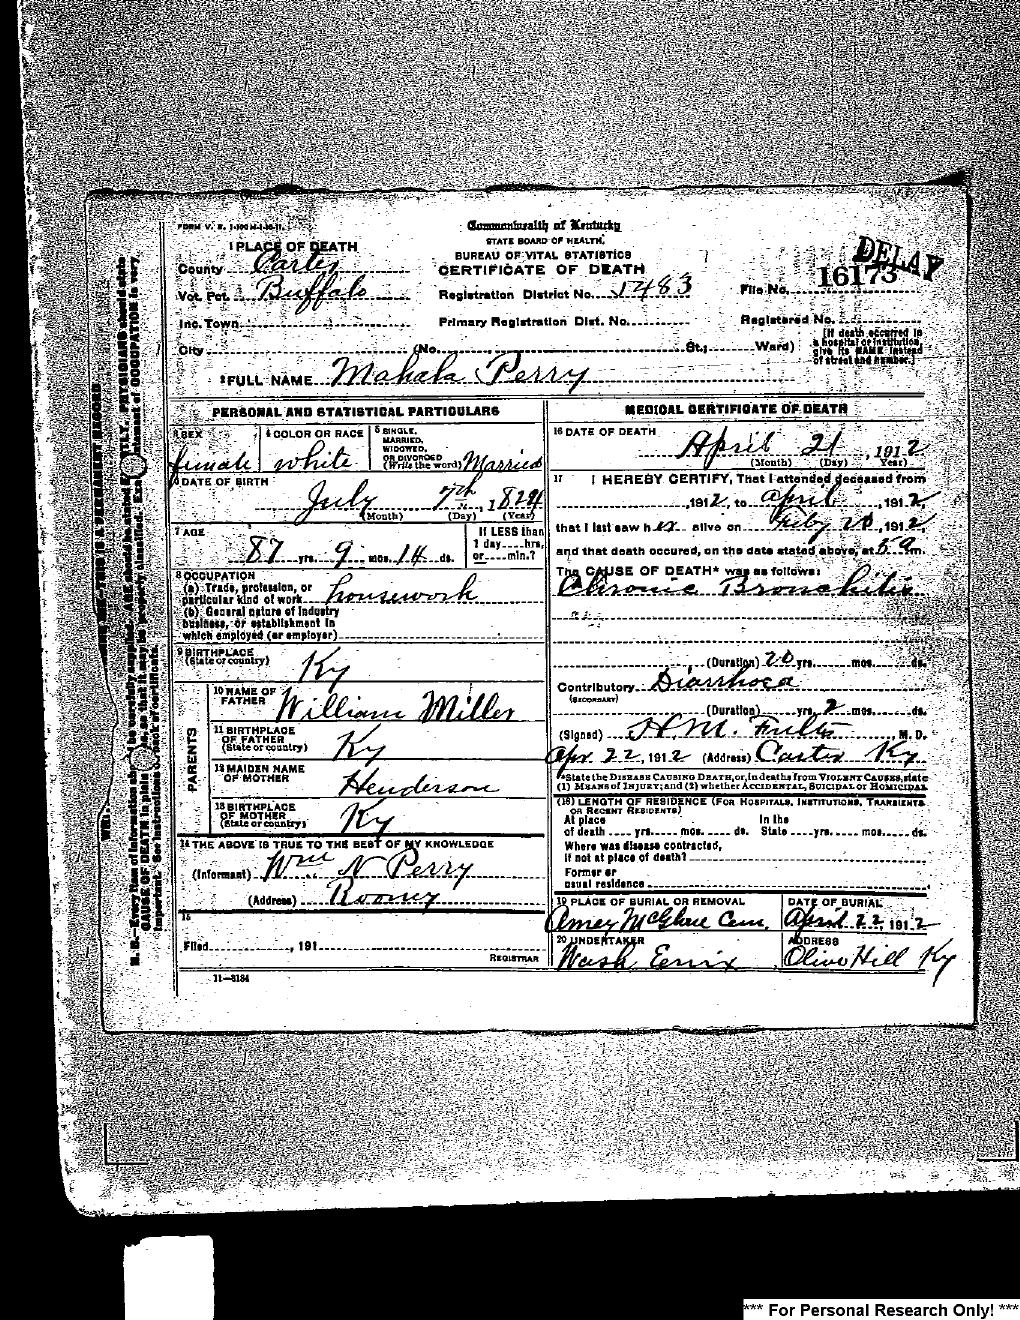 FORM V. S. 1-100 M-1-10-11.
Commonwealth of Kentucky
STATE BOARD OF HEALTH,
BUREAU OF VITAL STATISTICS
CERTIFICATE OF DEATH
1 PLACE OF DEATH
County Carter
Vot. Pct. Buffalo
Inc. Town
City (No. St.; Ward)
Registration District No. 1483
Primary Registration Dist. No.
DELAY
File No. 16173
Registered No.
[If death occurred in
a hospital or institution,
give its NAME instead
of street and number.]
2 FULL NAME Mahala Perry
PERSONAL AND STATISTICAL PARTICULARS
3 SEX
female
4 COLOR OR RACE
white
5 SINGLE,
MARRIED,
WIDOWED,
OR DIVORCED
(Write the word) Married
6 DATE OF BIRTH
July 7th, 1824
(Month) (Day) (Year)
7 AGE
87 yrs. 9 mos. 14 ds.
If LESS than
1 day hrs.
or min.?
8 OCCUPATION
(a) Trade, profession, or
particular kind of work housework
(b) General nature of industry
business, or establishment in
which employed (or employer)
9 BIRTHPLACE
(State or country) Ky
PARENTS
10 NAME OF
FATHER William Miller
11 BIRTHPLACE
OF FATHER
(State or country) Ky
12 MAIDEN NAME
OF MOTHER Henderson
13 BIRTHPLACE
OF MOTHER
(State or country) Ky
14 THE ABOVE IS TRUE TO THE BEST OF MY KNOWLEDGE
(Informant) Wm N Perry
(Address) Rooney
15
Filed , 191
REGISTRAR
11—3184
MEDICAL CERTIFICATE OF DEATH
16 DATE OF DEATH
April 21, 1912
(Month) (Day) (Year)
17 I HEREBY CERTIFY, That I attended deceased from
, 1912, to April , 1912,
that I last saw her alive on Feby 20, 1912
and that death occured, on the date stated above, at 5 a m.
The CAUSE OF DEATH* was as follows:
Chronic Bronchitis
(Duration) 20 yrs. mos. ds.
Contributory Diarrhoea
(SECONDARY)
(Duration) yrs. 2 mos. ds.
(Signed) H.M. , M. D.
Apr. 22, 1912 (Address) Carter Ky
*State the DISEASE CAUSING DEATH, or, in deaths from VIOLENT CAUSES, state
(1) MEANS of INJURY; and (2) whether ACCIDENTAL, SUICIDAL or HOMICIDAL
(18) LENGTH OF RESIDENCE (FOR HOSPITALS, INSTITUTIONS, TRANSIENTS
OR RECENT RESIDENTS)
At place In the
of death yrs. mos. ds. State yrs. mos. ds.
Where was disease contracted,
If not at place of death?
Former or
usual residence
19 PLACE OF BURIAL OR REMOVAL
Amey McGlone Cem.
DATE OF BURIAL
April 22, 1912
20 UNDERTAKER
Wash Ennix
ADDRESS
Olive Hill Ky
N. B.—Every item of information should be carefully supplied. AGE should be stated EXACTLY. PHYSICIANS should state
CAUSE OF DEATH in plain terms, so that it may be properly classified. Exact statement of OCCUPATION is very
important. See instructions on back of certificate.
*** For Personal Research Only! ***